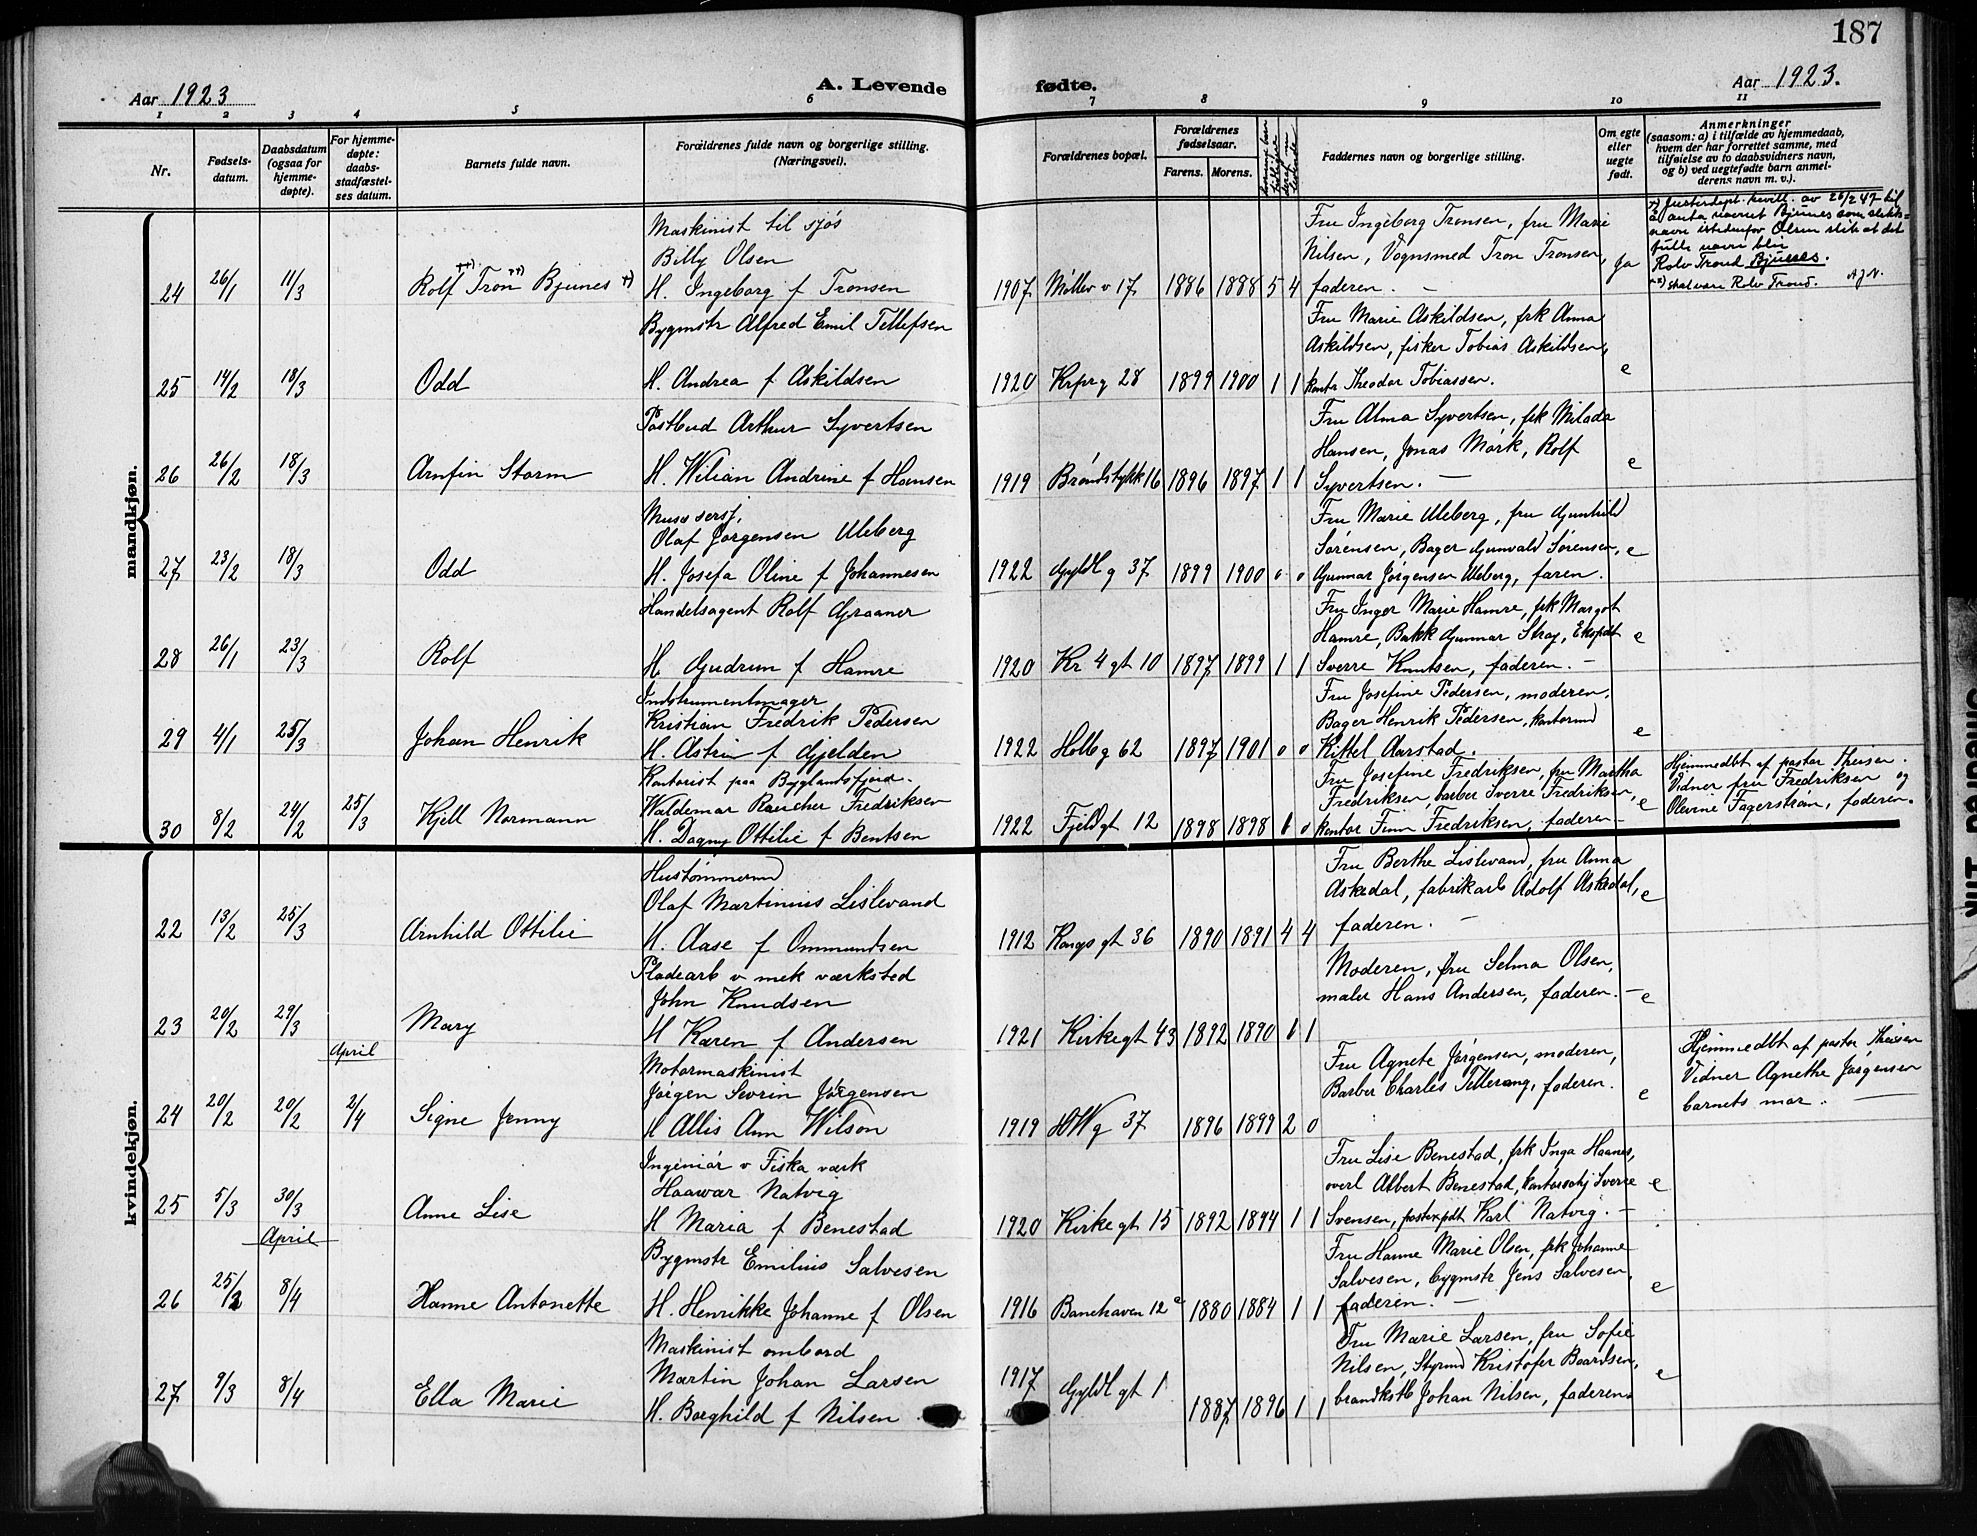 187
Aar 1923
A. Levende
fødte.
Aar 1923.
1 2 3 4 5 6 7 8 9 10 11
Nr.
Fødsels-
datum.
Daabsdatum
(ogsaa for
hjemme-
døpte).
For hjemme-
døpte:
daabs-
stadfæstel-
ses datum.
Barnets fulde navn.
Forældrenes fulde navn og borgerlige stilling.
(Næringsvei).
Forældrenes bopæl.
Forældrenes
fødselsaar.
Farens. Morens.
Faddernes navn og borgerlige stilling.
Om egte
eller
uegte
født.
Anmerkninger
(saasom: a) i tilfælde av hjemmedaab,
hvem der har forrettet samme, med
tilføielse av to daabsvidners navn,
og b) ved uegtefødte barn anmel-
derens navn m. v.).
mandkjøn.
24 26/1 11/3 Rolf ++) Tron ++) Bjunes +)
Maskinist til sjøs
Billy Olsen
H. Ingeborg f Tronsen
1907 Møllev v 17 1886 1888 5 4
Fru Ingeborg Tronsen, fru Marie
Nilsen, Vognsmed Tron Tronsen,
faderen. —
Ja
+) Justerdept. bevill. av 26/2 47 til
å anta navnet Bjunes som slekts-
navn istedenfor Olsen slik at det
fulle navn blir
Rolv Trond Bjunes.
++) skal være Rolv Trond. A.J.N.
25 14/2 18/3 Odd
Bygmstr Alfred Emil Tellefsen
H. Andrea f Askildsen
1920 Krprg 28 1899 1900 1 1
Fru Marie Askildsen, frk Anna
Askildsen, fisker Tobias Askildsen,
kontr Theodor Tobiassen.
e
26 26/2 18/3 Arnfin Storm
Postbud Arthur Syvertsen
H. Wilian Andrine f Hansen
1919 Brøndstykk 16 1896 1897 1 1
Fru Alma Syvertsen, frk Milada
Hansen, Jonas Mørk, Rolf
Syvertsen. —
e
27 23/2 18/3 Odd
Olaf Jørgensen Uleberg
H. Josefa Oline f Johannesen
1922 Gyldl g 37 1899 1900 0 0
Fru Marie Uleberg, fru Gunhild
Sørensen, Bager Gunvald Sørensen,
Gunnar Jørgensen Uleberg, faren.
e
28 26/1 23/3 Rolf
Handelsagent Rolf Graaner
H Gudrun f Hamre
1920 Kr 4 gt 10 1897 1899 1 1
Fru Inger Marie Hamre, frk Margot
Hamre, Bakk Gunnar Stray, Ekspdt
Sverre Knutsen, faderen. —
e
29 4/1 25/3 Johan Henrik
Instrumentmager
Kristian Fredrik Pedersen
H. Astrin f Gjelden
1922 Holbg 62 1897 1901 0 0
Fru Josefine Pedersen, moderen,
Bager Henrik Pedersen, kontormd
Kittel Aarstad.
e
30 8/2 24/2 25/3 Kjell Normann
Kontorist paa Byglandsfjord.
Waldemar Rancher Fredriksen
H. Dagny Ottilie f Bentsen
1922 Fjeldgt 12 1898 1898 0
Fru Josefine Fredriksen, fru Martha
Fredriksen, barber Sverre Fredriksen,
kontor Finn Fredriksen, faderen —
e
Hjemmedbt af pastor Theisen.
Vidner fru Fredriksen og
Olevine Fagerstrøm, faderen.
kvindekjøn.
22 13/2 25/3 Arnhild Ottilie
Hustømmermd
Olaf Martinius Lislevand
H. Aase f Ommundsen
1912 Kongsgt 36 1890 1891 4 4
Fru Berthe Lislevand, fru Anna
Askedal, fabrikarb Adolf Askedal,
faderen. —
e
23 20/2 29/3 Mary
Pladearb v mek værksted
John Knudsen
H Karen f Andersen
1921 Kirkegt 43 1892 1890 1
Moderen, fru Selma Olsen,
maler Hans Andersen, faderen. —
e
April
24 20/2 20/2 2/4 Signe Jenny
Motormaskinist
Jørgen Sevrin Jørgensen
H Allis Ann Wilson
1919 HWg 37 1896 1899 2 0
Fru Agnete Jørgensen, moderen,
Barber Charles Tellerang, faderen.
e
Hjemmedbt af pastor Theisen
Vidner Agnethe Jørgensen
barnets mor. —
25 5/3 30/3 Anne Lise
Ingeniør v Fiska værk
Haawar Natvig
H Maria f Benestad
1920 Kirkegt 15 1892 1894 1 1
Fru Lise Benestad, frk Inga Haanes,
overl Albert Benestad, kontorchj Sverre
Svensen, postexpdt Karl Natvig. —
e
April
26 25/2 8/4 Hanne Antonette
Bygmstr Emilius Salvesen
H. Henrikke Johanne f Olsen
1916 Banehaven 12 e 1880 1884 1 1
Fru Hanne Marie Olsen, frk Johanne
Salvesen, bygmstr Jens Salvesen,
faderen. —
e
27 9/3 8/4 Ella Marie
Maskinist ombord
Martin Johan Larsen
H. Borghild f Nilsen
1917 Gyldl gt 1 1887 1896 1 1
Fru Marie Larsen, fru Sofie
Nilsen, Styrmd Kristofer Baardsen,
brandkstb Johan Nilsen, faderen
e